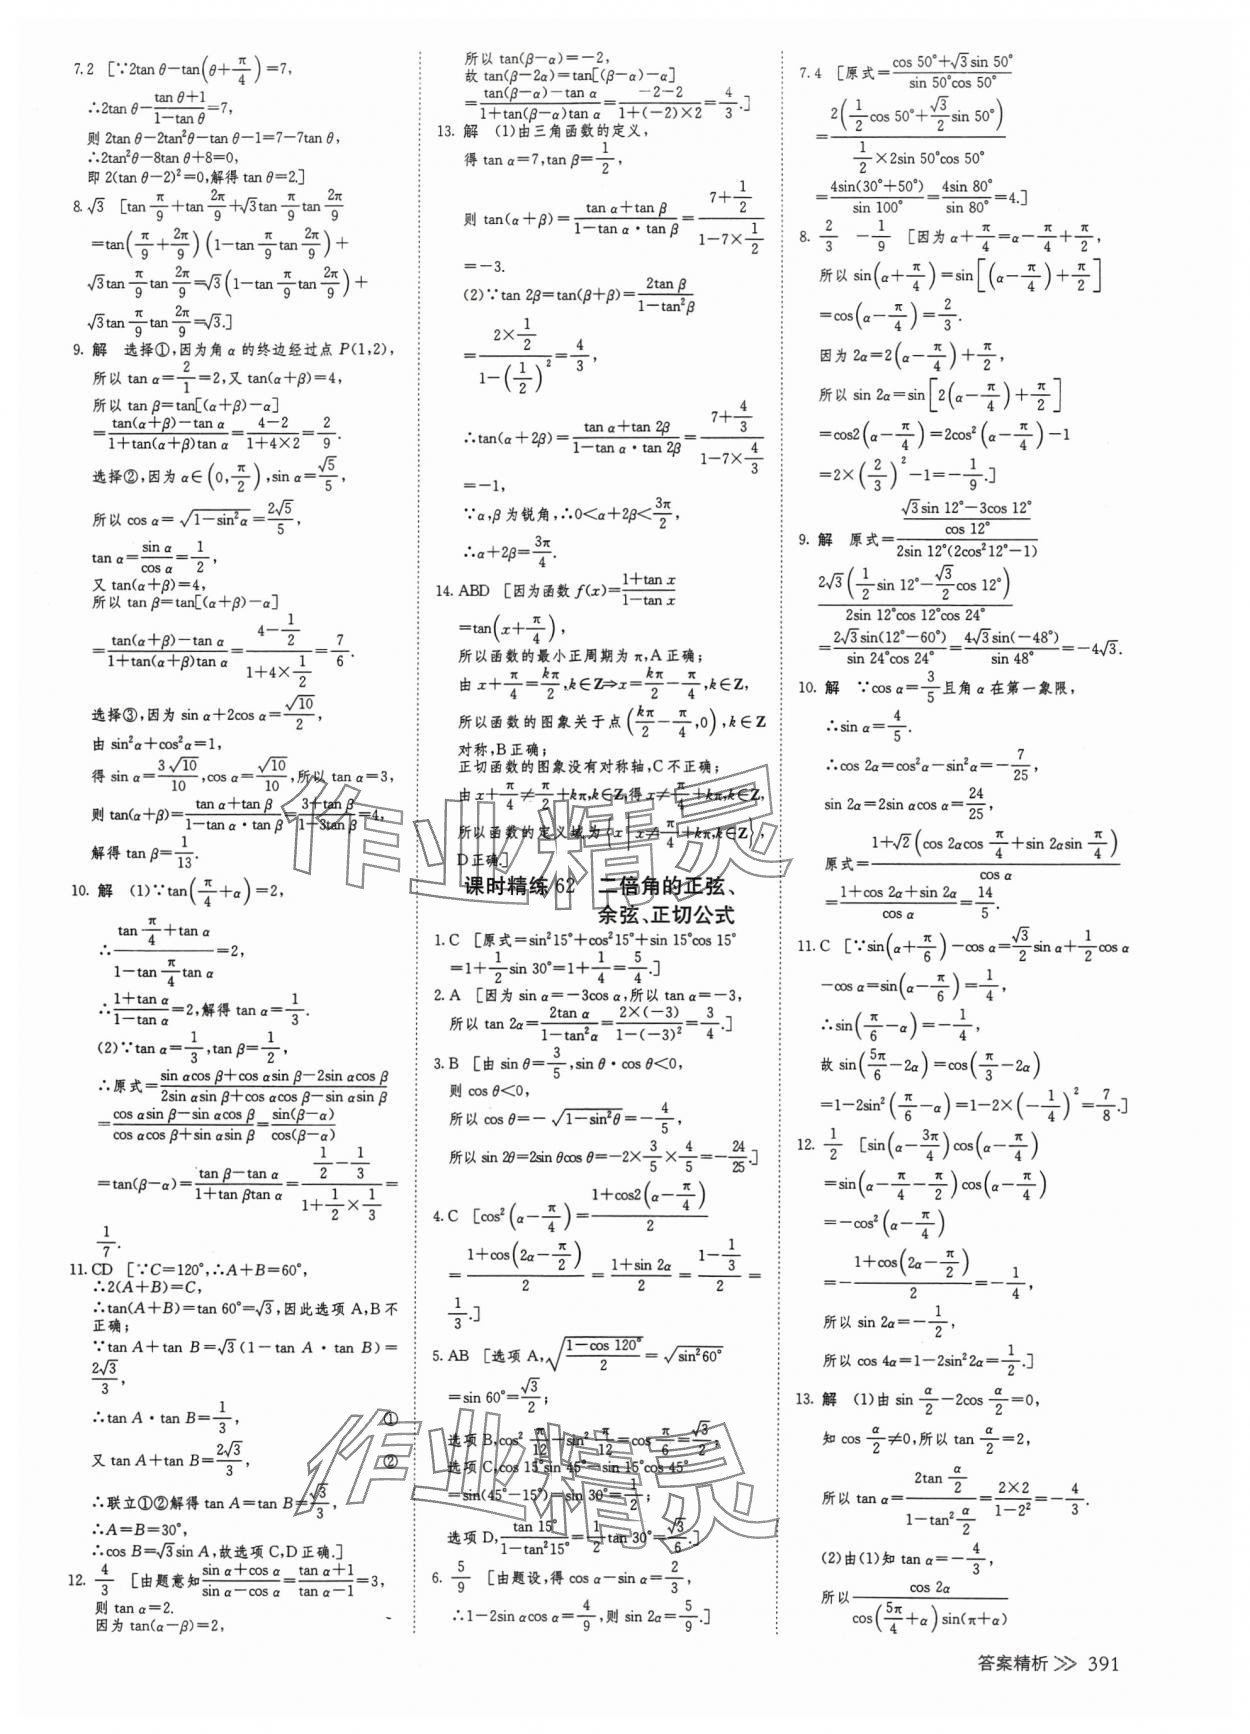 7.2 [∵2tan θ−tan(θ+π/4)=7,
∴2tan θ−(tan θ+1)/(1−tan θ)=7,
则 2tan θ−2tan²θ−tan θ−1=7−7tan θ,
∴2tan²θ−8tan θ+8=0,
即 2(tan θ−2)²=0,解得 tan θ=2.]
8.√3 [tan π/9+tan 2π/9+√3tan π/9 tan 2π/9
=tan(π/9+2π/9)(1−tan π/9 tan 2π/9)+
√3tan π/9 tan 2π/9=√3(1−tan π/9 tan 2π/9)+
√3tan π/9 tan 2π/9=√3.]
9. 解 选择①,因为角 α 的终边经过点 P(1,2),
所以 tan α=2/1=2,又 tan(α+β)=4,
所以 tan β=tan[(α+β)−α]
=(tan(α+β)−tan α)/(1+tan(α+β)tan α)=(4−2)/(1+4×2)=2/9.
选择②,因为 α∈(0,π/2),sin α=√5/5,
所以 cos α=√(1−sin²α)=2√5/5,
tan α=sin α/cos α=1/2,
又 tan(α+β)=4,
所以 tan β=tan[(α+β)−α]
=(tan(α+β)−tan α)/(1+tan(α+β)tan α)=(4−1/2)/(1+4×1/2)=7/6.
选择③,因为 sin α+2cos α=√10/2,
由 sin²α+cos²α=1,
得 sin α=3√10/10,cos α=√10/10,所以 tan α=3,
则 tan(α+β)=(tan α+tan β)/(1−tan α·tan β)=(3+tan β)/(1−3tan β)=4,
解得 tan β=1/13.
10. 解 (1)∵tan(π/4+α)=2,
∴(tan π/4+tan α)/(1−tan π/4 tan α)=2,
∴(1+tan α)/(1−tan α)=2,解得 tan α=1/3.
(2)∵tan α=1/3,tan β=1/2,
∴原式=(sin αcos β+cos αsin β−2sin αcos β)/(2sin αsin β+cos αcos β−sin αsin β)
=(cos αsin β−sin αcos β)/(cos αcos β+sin αsin β)=sin(β−α)/cos(β−α)
=tan(β−α)=(tan β−tan α)/(1+tan βtan α)=(1/2−1/3)/(1+1/2×1/3)=
1/7.
11.CD [∵C=120°,∴A+B=60°,
∴2(A+B)=C,
∴tan(A+B)=tan 60°=√3,因此选项 A,B 不
正确;
∵tan A+tan B=√3(1−tan A·tan B)=
2√3/3,
∴tan A·tan B=1/3, ①
又 tan A+tan B=2√3/3, ②
∴联立①②解得 tan A=tan B=√3/3,
∴A=B=30°,
∴cos B=√3sin A,故选项 C,D 正确.]
12. 4/3 [由题意知(sin α+cos α)/(sin α−cos α)=(tan α+1)/(tan α−1)=3,
则 tan α=2.
因为 tan(α−β)=2,
所以 tan(β−α)=−2,
故 tan(β−2α)=tan[(β−α)−α]
=(tan(β−α)−tan α)/(1+tan(β−α)tan α)=(−2−2)/(1+(−2)×2)=4/3.]
13. 解 (1)由三角函数的定义,
得 tan α=7,tan β=1/2,
则 tan(α+β)=(tan α+tan β)/(1−tan α·tan β)=(7+1/2)/(1−7×1/2)
=−3.
(2)∵tan 2β=tan(β+β)=2tan β/(1−tan²β)
=(2×1/2)/(1−(1/2)²)=4/3,
∴tan(α+2β)=(tan α+tan 2β)/(1−tan α·tan 2β)=(7+4/3)/(1−7×4/3)
=−1,
∵α,β 为锐角,∴0<α+2β<3π/2,
∴α+2β=3π/4.
14.ABD [因为函数 f(x)=(1+tan x)/(1−tan x)
=tan(x+π/4),
所以函数的最小正周期为 π,A 正确;
由 x+π/4=kπ/2,k∈Z⇒x=kπ/2−π/4,k∈Z,
所以函数的图象关于点(kπ/2−π/4,0),k∈Z
对称,B 正确;
正切函数的图象没有对称轴,C 不正确;
由 x+π/4≠π/2+kπ,k∈Z,得 x≠π/4+kπ,k∈Z,
所以函数的定义域为{x|x≠π/4+kπ,k∈Z},
D 正确.]
课时精练 62 二倍角的正弦、
余弦、正切公式
1.C [原式=sin²15°+cos²15°+sin 15°cos 15°
=1+1/2 sin 30°=1+1/4=5/4.]
2.A [因为 sin α=−3cos α,所以 tan α=−3,
所以 tan 2α=2tan α/(1−tan²α)=2×(−3)/(1−(−3)²)=3/4.]
3.B [由 sin θ=3/5,sin θ·cos θ<0,
则 cos θ<0,
所以 cos θ=−√(1−sin²θ)=−4/5,
所以 sin 2θ=2sin θcos θ=−2×3/5×4/5=−24/25.]
4.C [cos²(α−π/4)=(1+cos2(α−π/4))/2
=(1+cos(2α−π/2))/2=(1+sin 2α)/2=(1−1/3)/2=
1/3.]
5.AB [选项 A,√((1−cos 120°)/2)=√(sin²60°)
=sin 60°=√3/2;
选项 B,cos² π/12−sin² π/12=cos π/6=√3/2,
选项 C,cos 15°sin 45°−sin 15°cos 45°
=sin(45°−15°)=sin 30°=1/2;
选项 D,tan 15°/(1−tan²15°)=1/2 tan 30°=√3/6.]
6. 5/9 [由题设,得 cos α−sin α=2/3,
∴1−2sin αcos α=4/9,则 sin 2α=5/9.]
7.4 [原式=(cos 50°+√3sin 50°)/(sin 50°cos 50°)
=2(1/2 cos 50°+√3/2 sin 50°)/(1/2×2sin 50°cos 50°)
=4sin(30°+50°)/sin 100°=4sin 80°/sin 80°=4.]
8. 2/3 −1/9 [因为 α+π/4=α−π/4+π/2,
所以 sin(α+π/4)=sin[(α−π/4)+π/2]
=cos(α−π/4)=2/3.
因为 2α=2(α−π/4)+π/2,
所以 sin 2α=sin[2(α−π/4)+π/2]
=cos2(α−π/4)=2cos²(α−π/4)−1
=2×(2/3)²−1=−1/9.]
9. 解 原式=((√3sin 12°−3cos 12°)/cos 12°)/(2sin 12°(2cos²12°−1))
2√3(1/2 sin 12°−√3/2 cos 12°)/(2sin 12°cos 12°cos 24°)
=2√3sin(12°−60°)/(sin 24°cos 24°)=4√3sin(−48°)/sin 48°=−4√3.
10. 解 ∵cos α=3/5且角 α 在第一象限,
∴sin α=4/5.
∴cos 2α=cos²α−sin²α=−7/25,
sin 2α=2sin αcos α=24/25,
原式=(1+√2(cos 2αcos π/4+sin 2αsin π/4))/cos α
=(1+cos 2α+sin 2α)/cos α=14/5.
11.C [∵sin(α+π/6)−cos α=√3/2 sin α+1/2 cos α
−cos α=sin(α−π/6)=1/4,
∴sin(π/6−α)=−1/4,
故 sin(5π/6−2α)=cos(π/3−2α)
=1−2sin²(π/6−α)=1−2×(−1/4)²=7/8.]
12. 1/2 [sin(α−3π/4)cos(α−π/4)
=sin(α−π/4−π/2)cos(α−π/4)
=−cos²(α−π/4)
=−(1+cos(2α−π/2))/2=−1/4,
所以 sin 2α=−1/2,
所以 cos 4α=1−2sin²2α=1/2.]
13. 解 (1)由 sin α/2−2cos α/2=0,
知 cos α/2≠0,所以 tan α/2=2,
所以 tan α=(2tan α/2)/(1−tan² α/2)=(2×2)/(1−2²)=−4/3.
(2)由(1)知 tan α=−4/3,
所以 cos 2α/(cos(5π/4+α)sin(π+α))
答案精析 >> 391
作业精灵
作业精灵